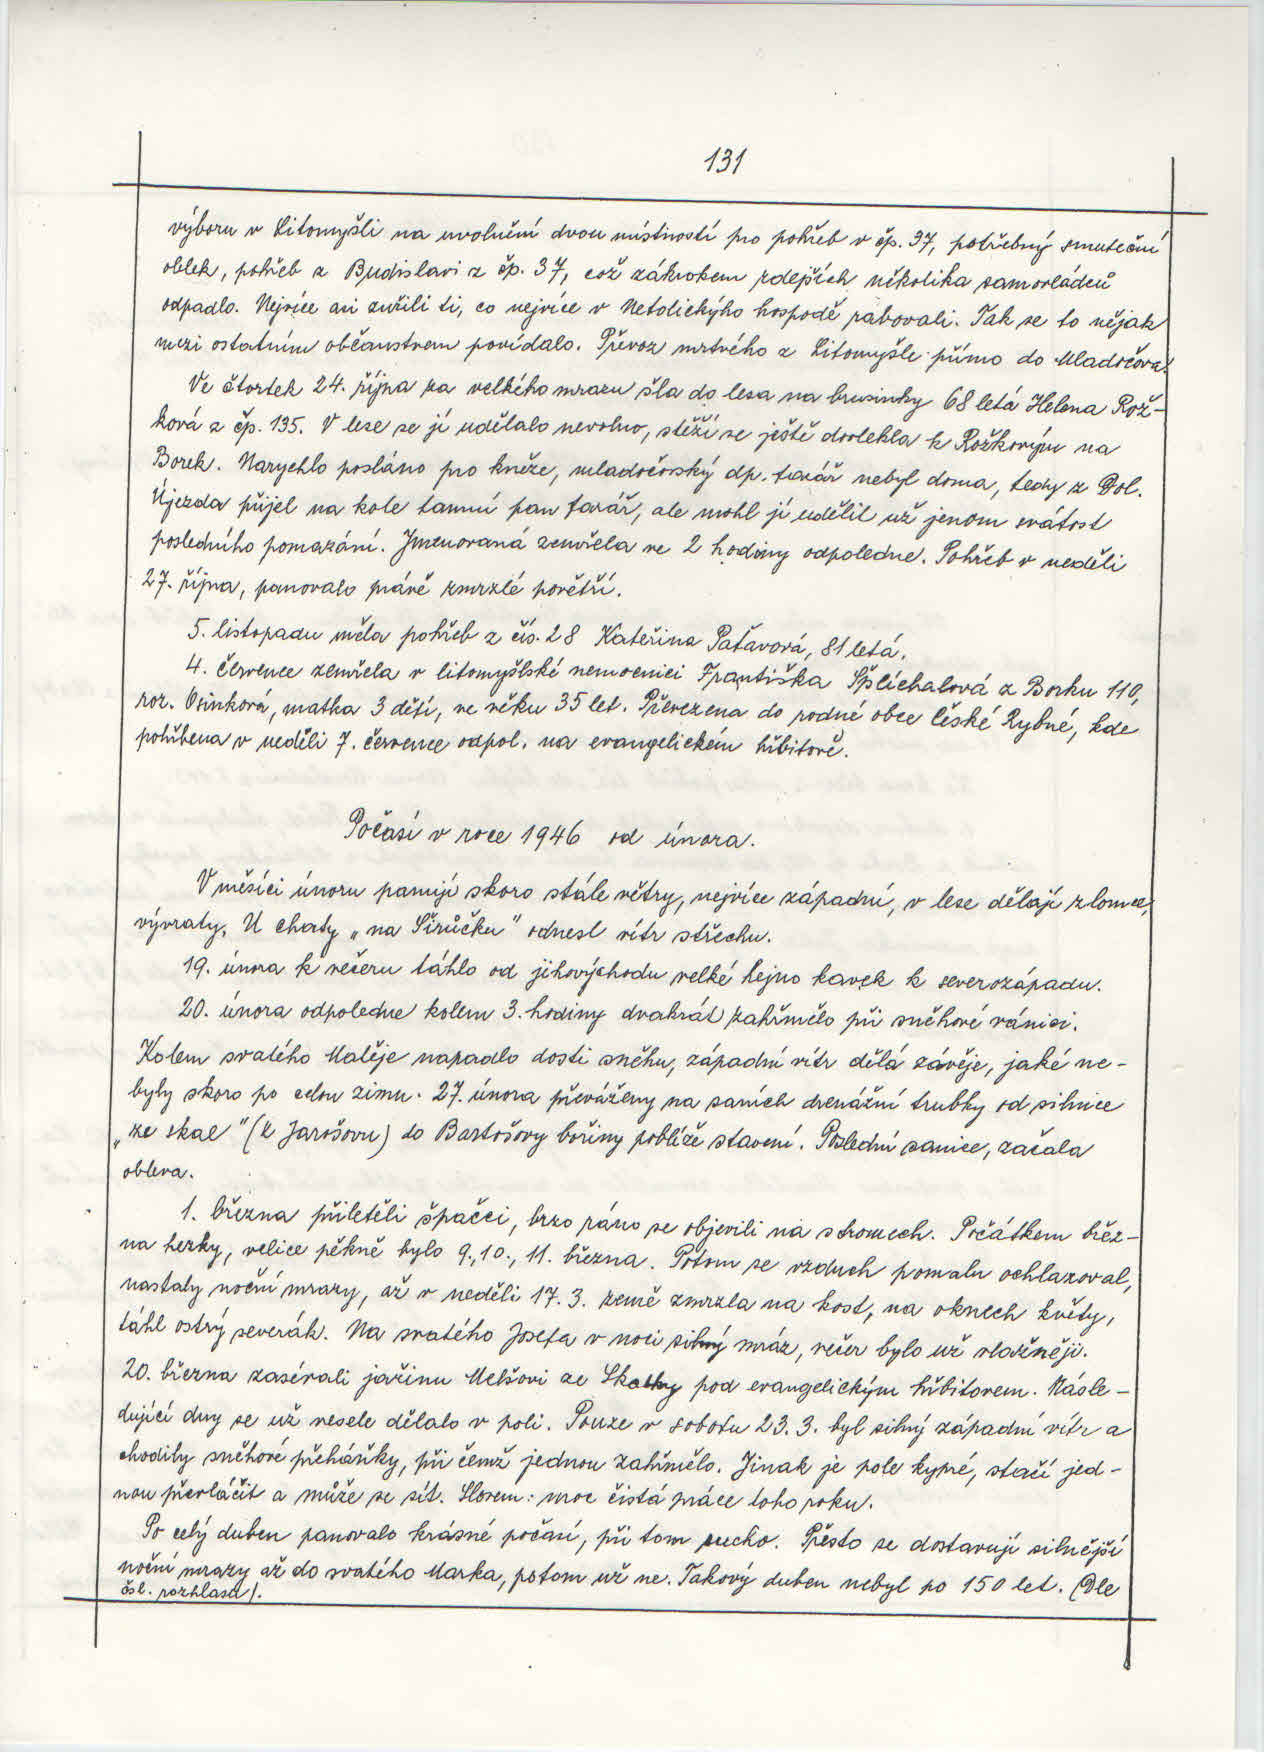 131
výboru v Litomyšli na uvolnění dvou místností pro pohřeb v čp. 37, potřebný smuteční
oblek, pohřeb z Budislavi z čp. 37, což zákrokem zdejších několika samovládců
odpadlo. Nejvíce asi zuřili ti, co nejvíce v Netolickýho hospodě rabovali. Tak se to nějak
mezi ostatním občanstvem povídalo. Převoz mrtvého z Litomyšle přímo do Mladočova.
Ve čtvrtek 24. října za velkého mrazu šla do lesa na brusinky 68 letá Helena Rož-
ková z čp. 135. V lese se jí udělalo nevolno, stěží se ještě dovlekla k Rožkovým na
Borek. Narychlo posláno pro kněze, mladočovský dp. farář nebyl doma, tedy z Dol.
Újezda přijel na kole tamní pan farář, ale mohl jí udělit už jenom svátost
posledního pomazání. Jmenovaná zemřela ve 2 hodiny odpoledne. Pohřeb v neděli
27. října, panovalo právě zmrzlé povětří.
5. listopadu měla pohřeb z čís. 28 Kateřina Paťavová, 81 letá.
4. července zemřela v litomyšlské nemocnici Františka Šplíchalová z Borku 110,
roz. Osinková, matka 3 dětí, ve věku 35 let. Převezena do rodné obce České Rybné, kde
pohřbena v neděli 7. července odpol. na evangelickém hřbitově.
Počasí v roce 1946 od února.
V měsíci únoru panují skoro stále větry, nejvíce západní, v lese dělají zlomce,
vývraty. U chaty „na Šírůčku" odnesl vítr střechu.
19. února k večeru táhlo od jihovýchodu velké hejno kavek k severozápadu.
20. února odpoledne kolem 3. hodiny dvakrát zahřmělo při sněhové vánici.
Kolem svatého Matěje napadlo dosti sněhu, západní vítr dělá závěje, jaké ne-
byly skoro po celou zimu. 27. února převáženy na saních drenážní trubky od silnice
„ze skal" (k Jarošovu) do Bartošovy bořiny poblíže stavení. Poslední sanice, začala
obleva.
1. března přiletěli špačci, brzo ráno se objevili na stromech. Počátkem břez-
na hezky, velice pěkně bylo 9., 10., 11. března. Potom se vzduch pomalu ochlazoval,
nastaly noční mrazy, až v neděli 17. 3. země zmrzla na kost, na oknech květy,
táhl ostrý severák. Na svatého Josefa v noci silný mráz, večer bylo už vlažněji.
20. března zasévali jařinu Melšovi ze Skalky pod evangelickým hřbitovem. Násle-
dující dny se už vesele dělalo v poli. Pouze v sobotu 23. 3. byl silný západní vítr a
chodily sněhové přeháňky, při čemž jednou zahřmělo. Jinak je pole kypré, stačí jed-
nou převláčit a může se sít. Slovem: moc čistá práce toho roku.
Po celý duben panovalo krásné počasí, při tom sucho. Přesto se dostavují silnější
noční mrazy až do svatého Marka, potom už ne. Takový duben nebyl po 150 let. (Dle
čsl. rozhlasu).